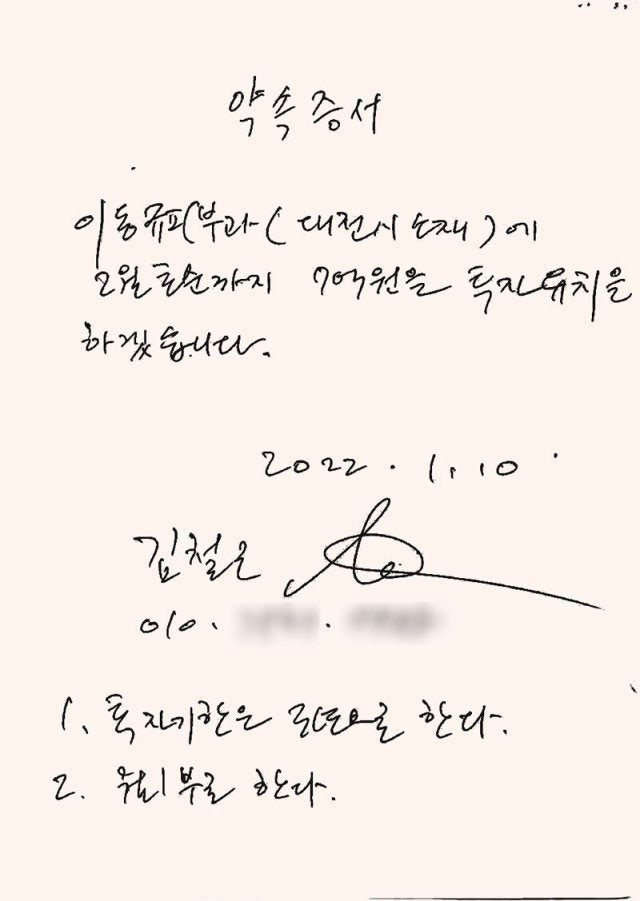 약속증서
이동규피부과 (대전시 소재)에
2월초순까지 7억원을 투자유치를
하겠습니다.
2022. 1. 10
김철근
010.
1. 투자기한은 5년으로 한다.
2. 월1부로 한다.